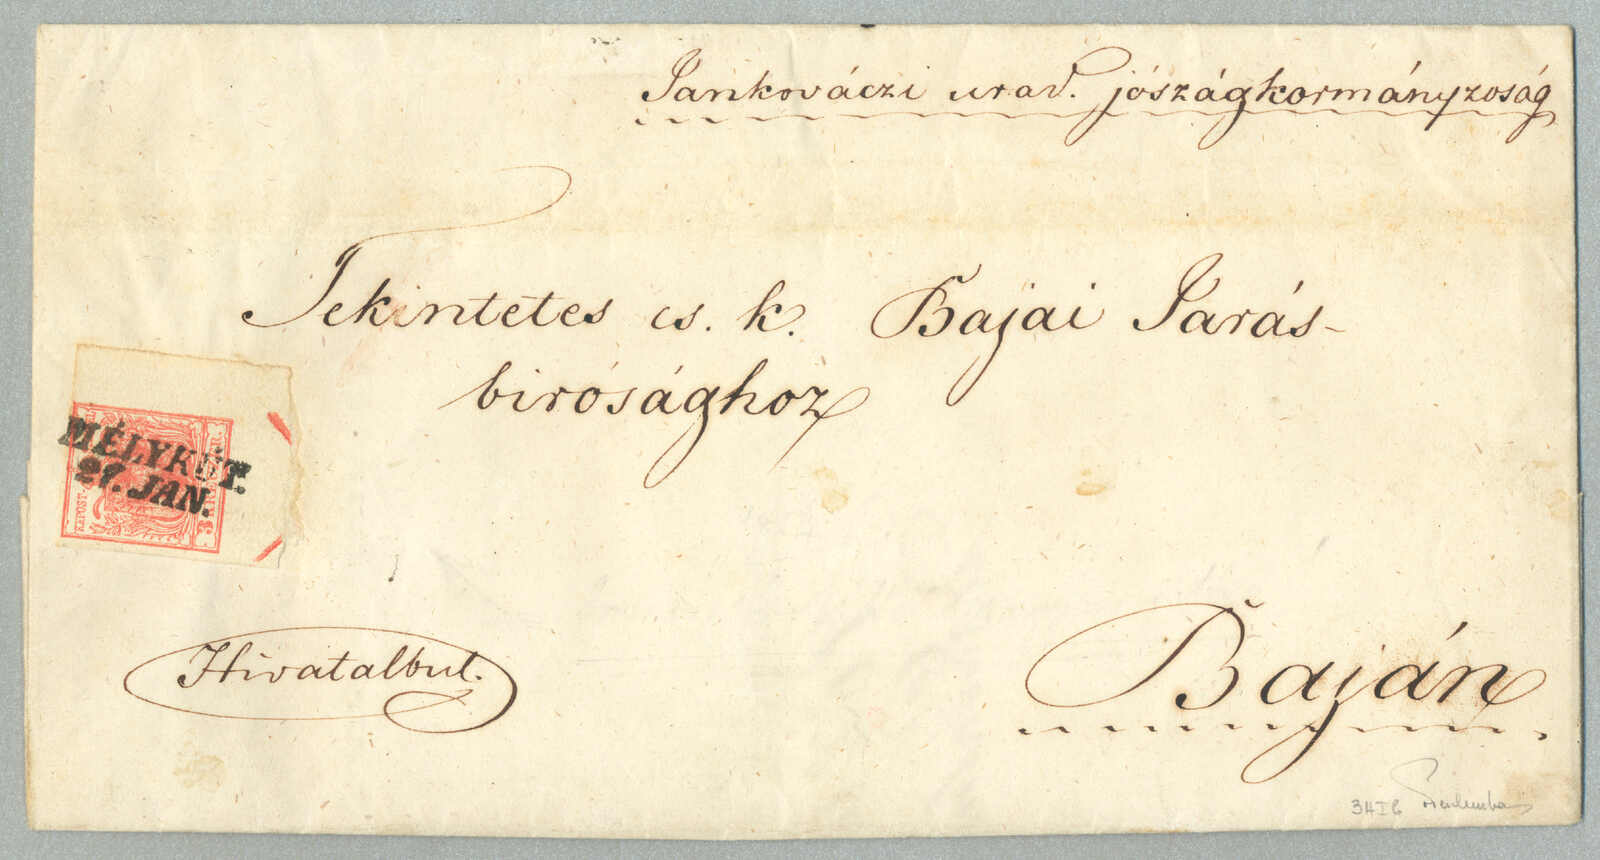 Jankováczi urad. jószágkormányzoság
Tekintetes cs. k. Bajai Járás-
birósághoz
MÉLYKÚT.
27. JAN.
KKPOST-
3
Hivatalbul.
Baján
34I6